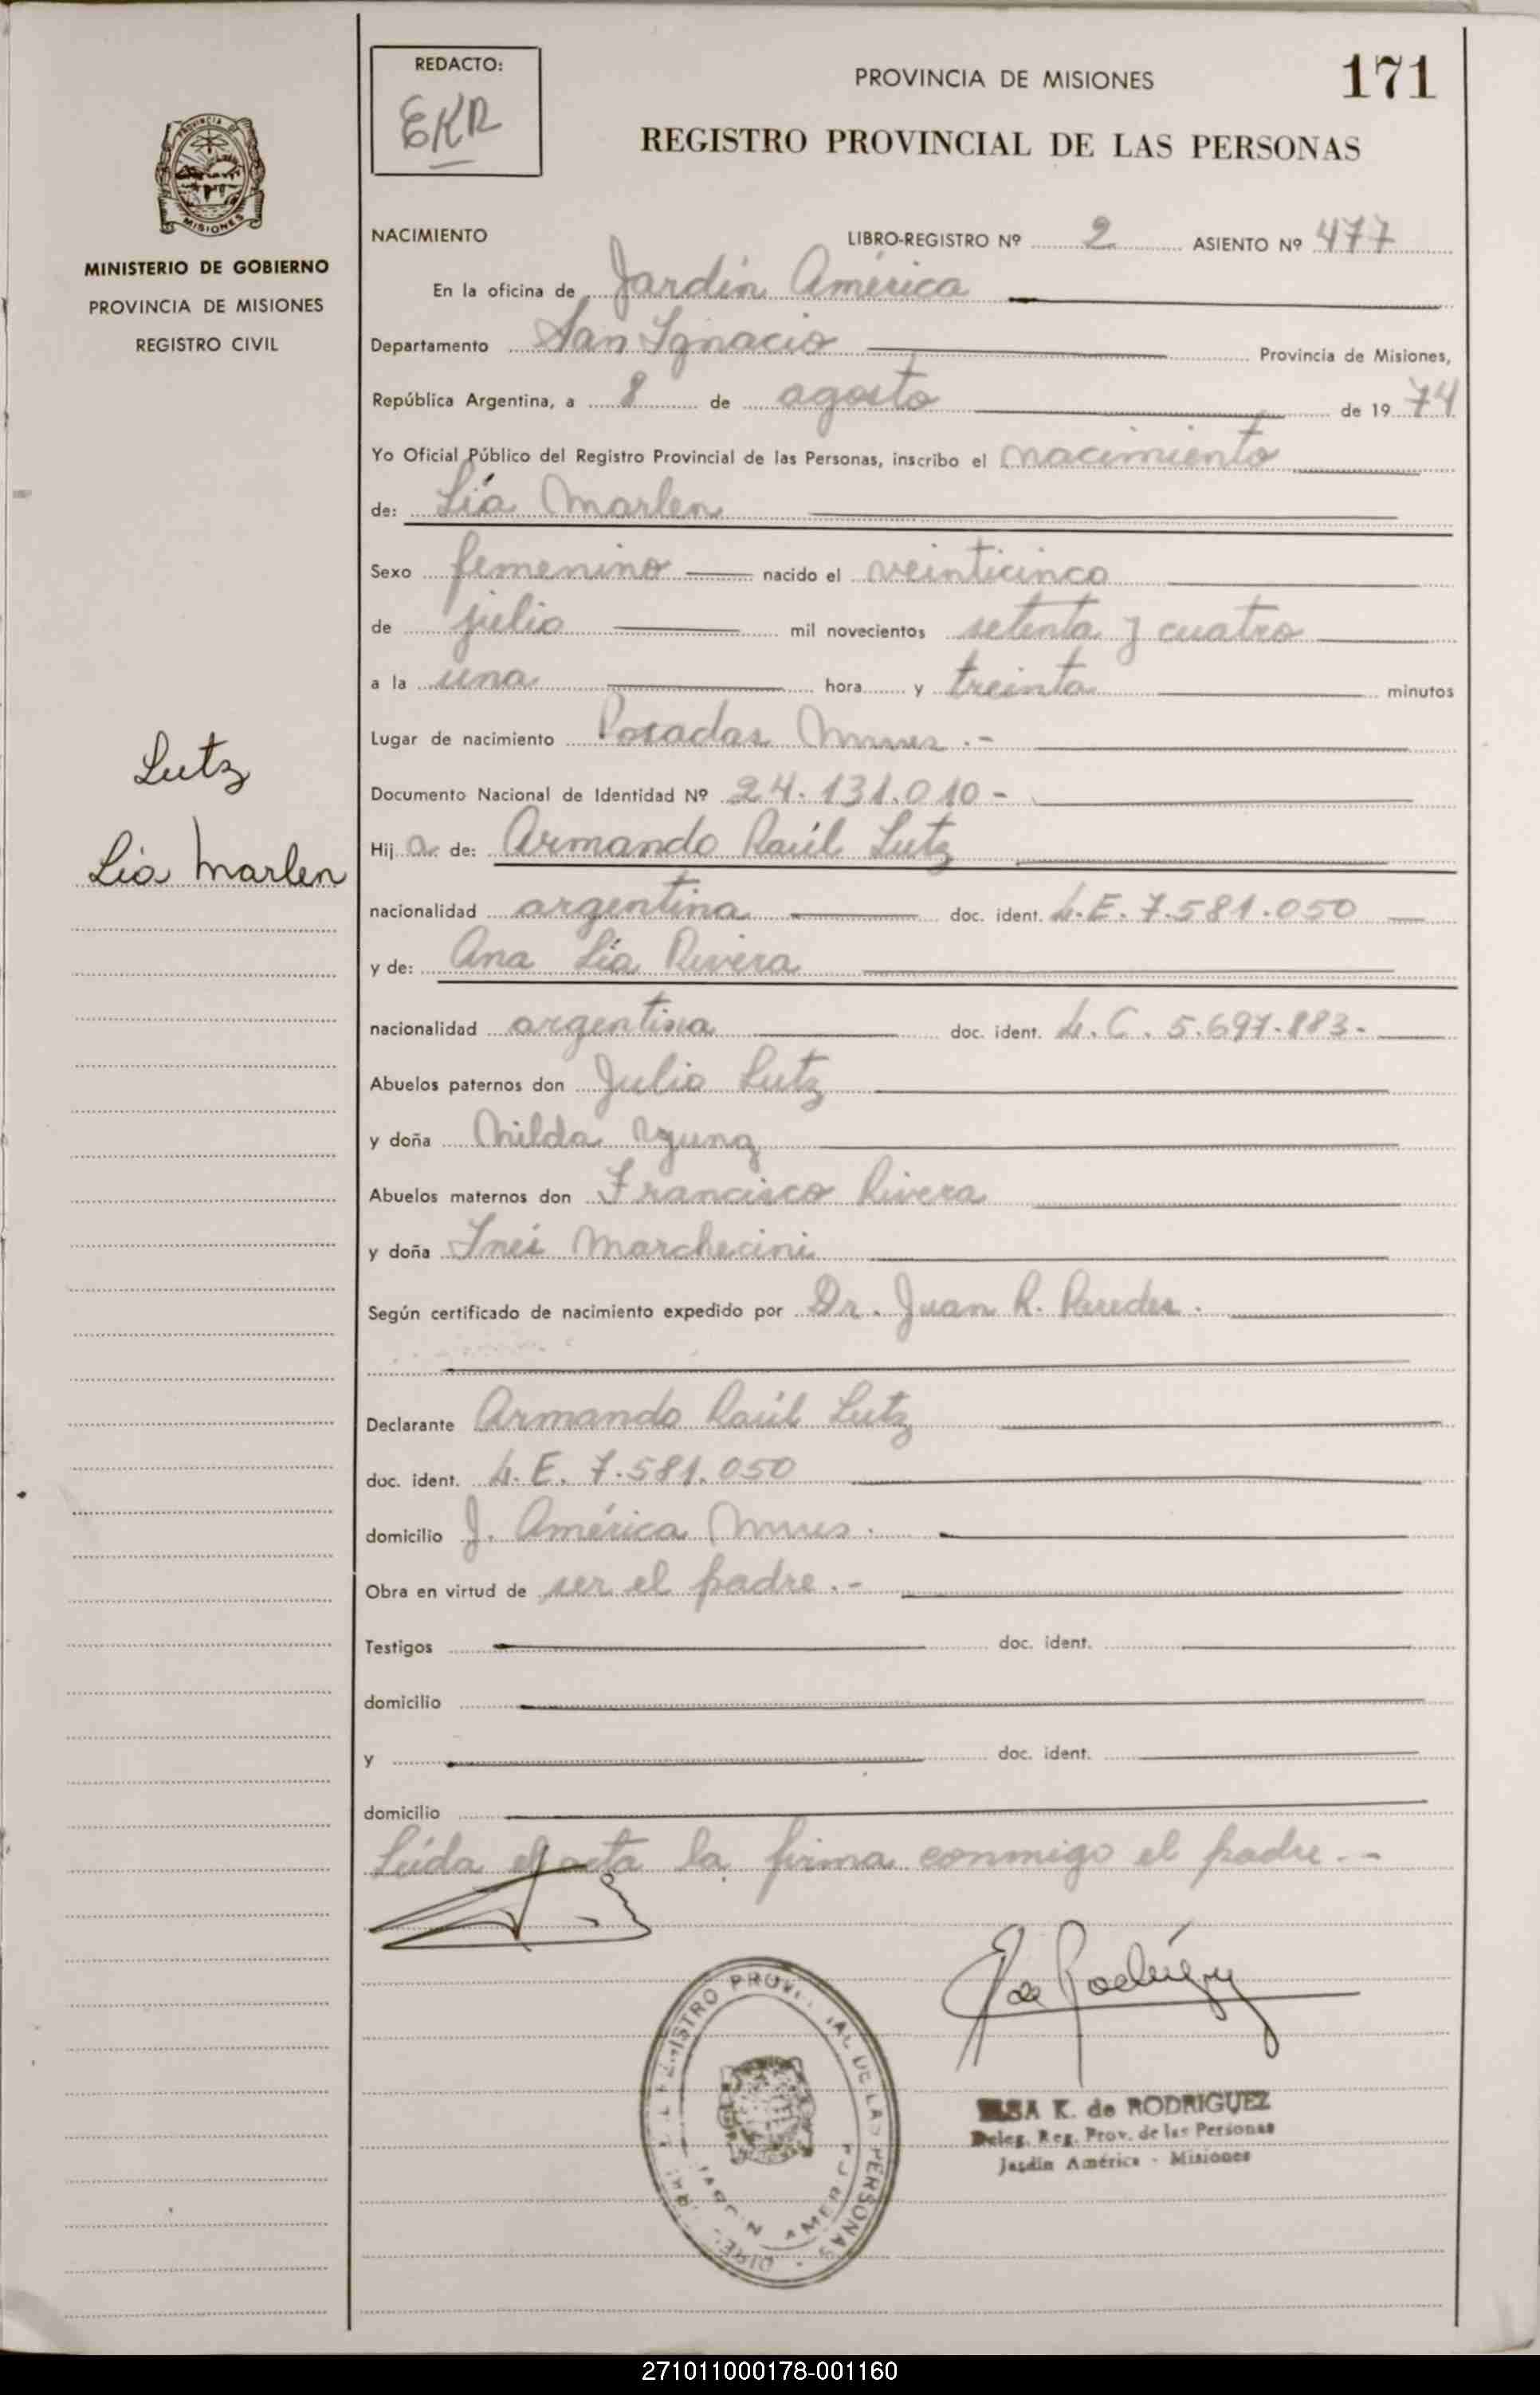 REDACTO:
EKR
PROVINCIA DE MISIONES
171
REGISTRO PROVINCIAL DE LAS PERSONAS
PROVINCIA DE
MISIONES
MINISTERIO DE GOBIERNO
PROVINCIA DE MISIONES
REGISTRO CIVIL
NACIMIENTO
LIBRO-REGISTRO Nº 2 ASIENTO Nº 477
En la oficina de Jardín América
Departamento San Ignacio Provincia de Misiones,
República Argentina, a 8 de agosto de 1974
Yo Oficial Público del Registro Provincial de las Personas, inscribo el nacimiento
de: Lía Marlen
Sexo femenino nacido el veinticinco
de julio mil novecientos setenta y cuatro
a la una hora y treinta minutos
Lugar de nacimiento Posadas Mnes.-
Documento Nacional de Identidad Nº 24.131.010-
Lutz
Lia Marlen
Hija de: Armando Raúl Lutz
nacionalidad argentina doc. ident. L.E. 7.581.050
y de: Ana Lía Rivera
nacionalidad argentina doc. ident. L.C. 5.697.883-
Abuelos paternos don Julio Lutz
y doña Milda
Abuelos maternos don Francisco Rivera
y doña Inés Marchecini
Según certificado de nacimiento expedido por Dr. Juan R. Paredes.
Declarante Armando Raúl Lutz
doc. ident. L.E. 7.581.050
domicilio J. América Mnes.
Obra en virtud de ser el padre.-
Testigos doc. ident.
domicilio
y doc. ident.
domicilio
Leída el acta la firma conmigo el padre.-
de Rodríguez
K. de RODRIGUEZ
Deleg. Reg. Prov. de las Personas
Jardín América - Misiones
REGISTRO PROVINCIAL DE LAS PERSONAS
JARDIN AMERICA
271011000178-001160